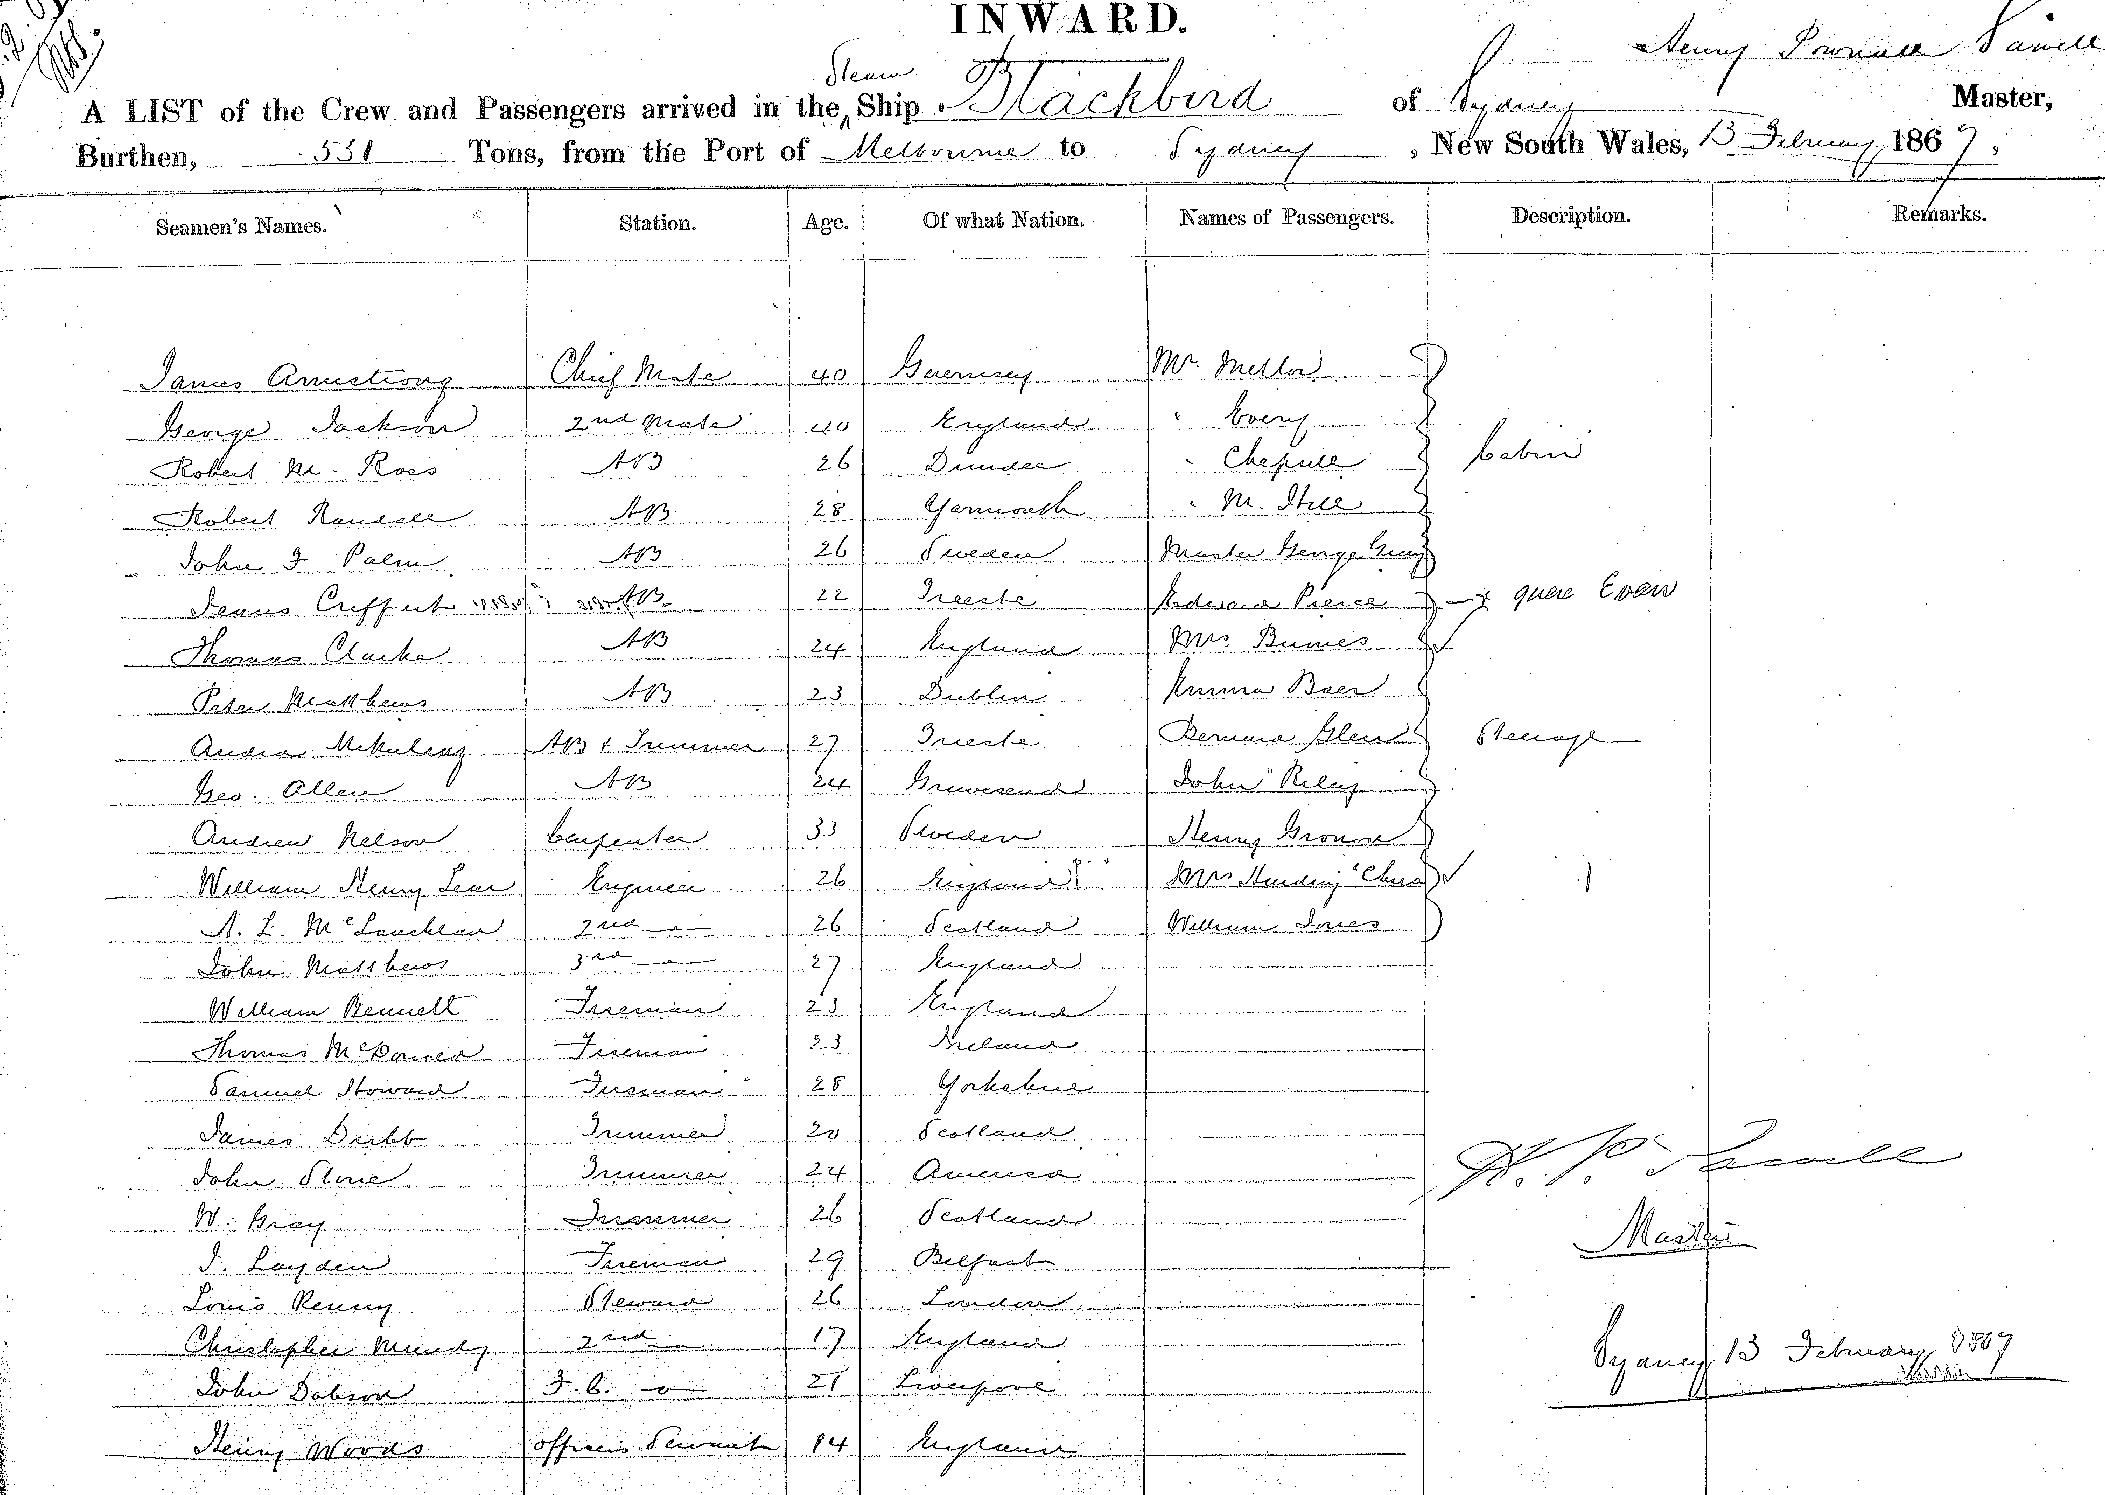 INWARD.
Henry
Steam
A LIST of the Crew and Passengers arrived in the Ship Blackbird of Sydney Master,
Burthen, 531 Tons, from the Port of Melbourne to Sydney, New South Wales, 13 February 1867,
Seamen's Names. Station. Age. Of what Nation. Names of Passengers. Description. Remarks.
James Armstrong Chief Mate 40 Guernsey Mr Mellor
George Jackson 2nd Mate 40 England " Every
Robert M. Ross AB 26 Dundee " Cabin
Robert Randall AB 28 Yarmouth " M. Hill
John F Palm AB 26 Sweden Master George
AB 22 Trieste Edward Pierce
Thomas Clarke AB 24 England Mrs
Peter Matthews AB 23 Dublin Emma Baer
Andrea AB & Trimmer 27 Trieste Bernard Glen Steerage
Geo. Allen AB 24 Gravesend John Riley
Andrew Nelson Carpenter 33 Sweden Henry
William Henry Engineer 26 England Mrs Harding
A. L. McLauchlan 2nd -o- 26 Scotland William Jones
John Matthews 3rd -o- 27 England
William Bennett Fireman 23 England
Thomas Fireman 23 Ireland
Samuel Howard Fireman 28 Yorkshire
James Trimmer 20 Scotland
John Stone Trimmer 24 America
H. P.
W. Gray Trimmer 26 Scotland
Master
J. Layden Fireman 29 Belfast
Louis Renny Steward 26 London
Christopher Mundy 2nd -o- 17 England
Sydney 13 February 1867
John Dobson F. C. -o- 21 Liverpool
Henry Woods Officers Servant 14 England